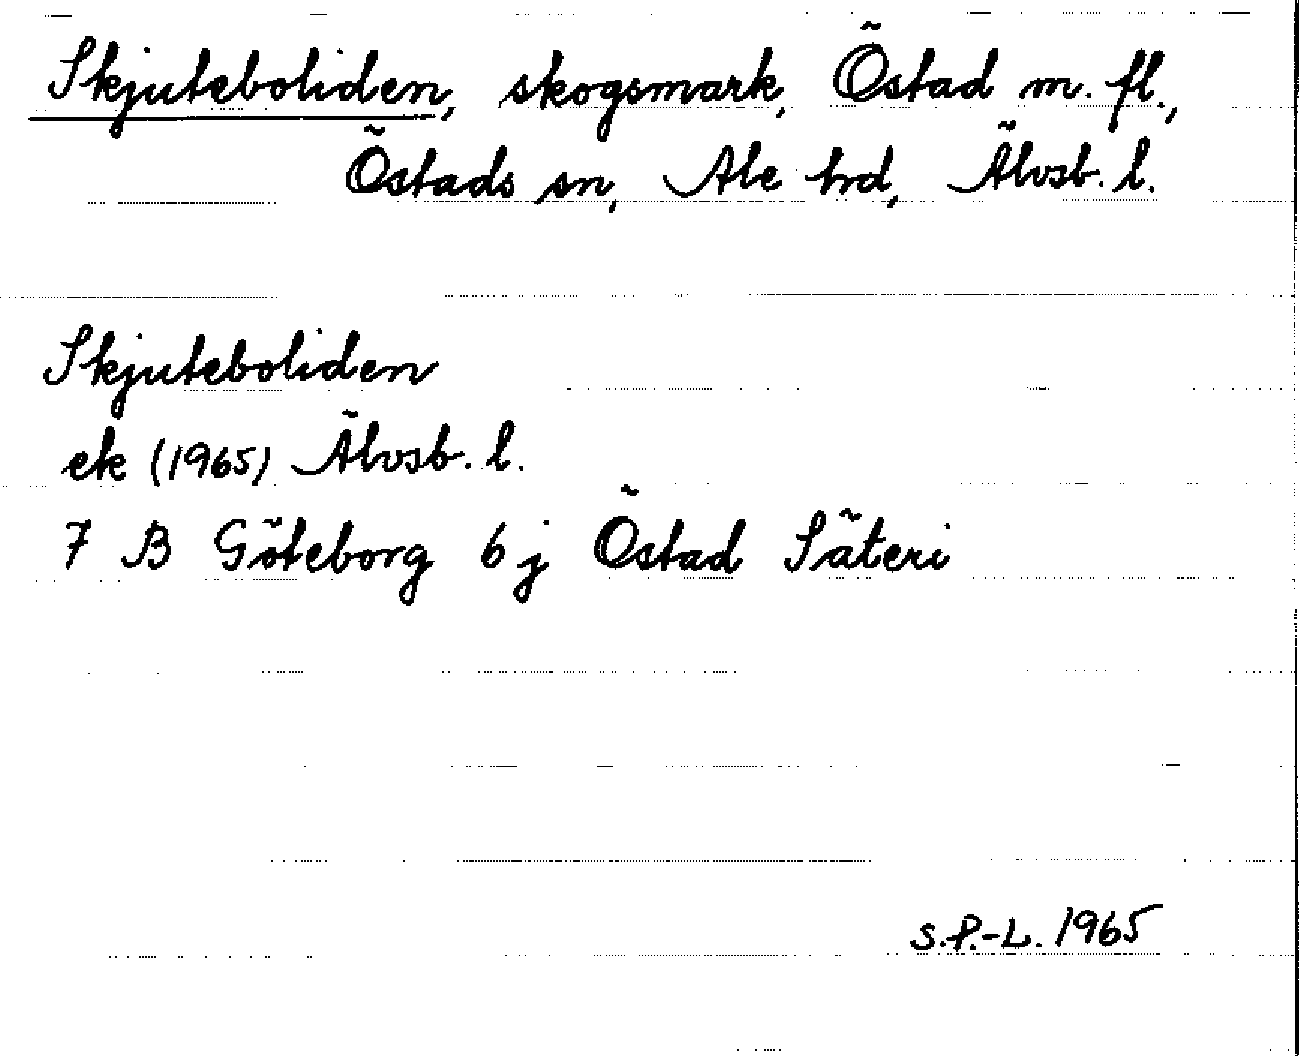 Skjuteboliden, skogsmark, Östad m. fl.,
Östads sn, Ale hrd, Älvsb. l.
Skjuteboliden
ek (1965) Älvsb. l.
7 B Göteborg 6 j Östad Säteri
S.P.-L. 1965